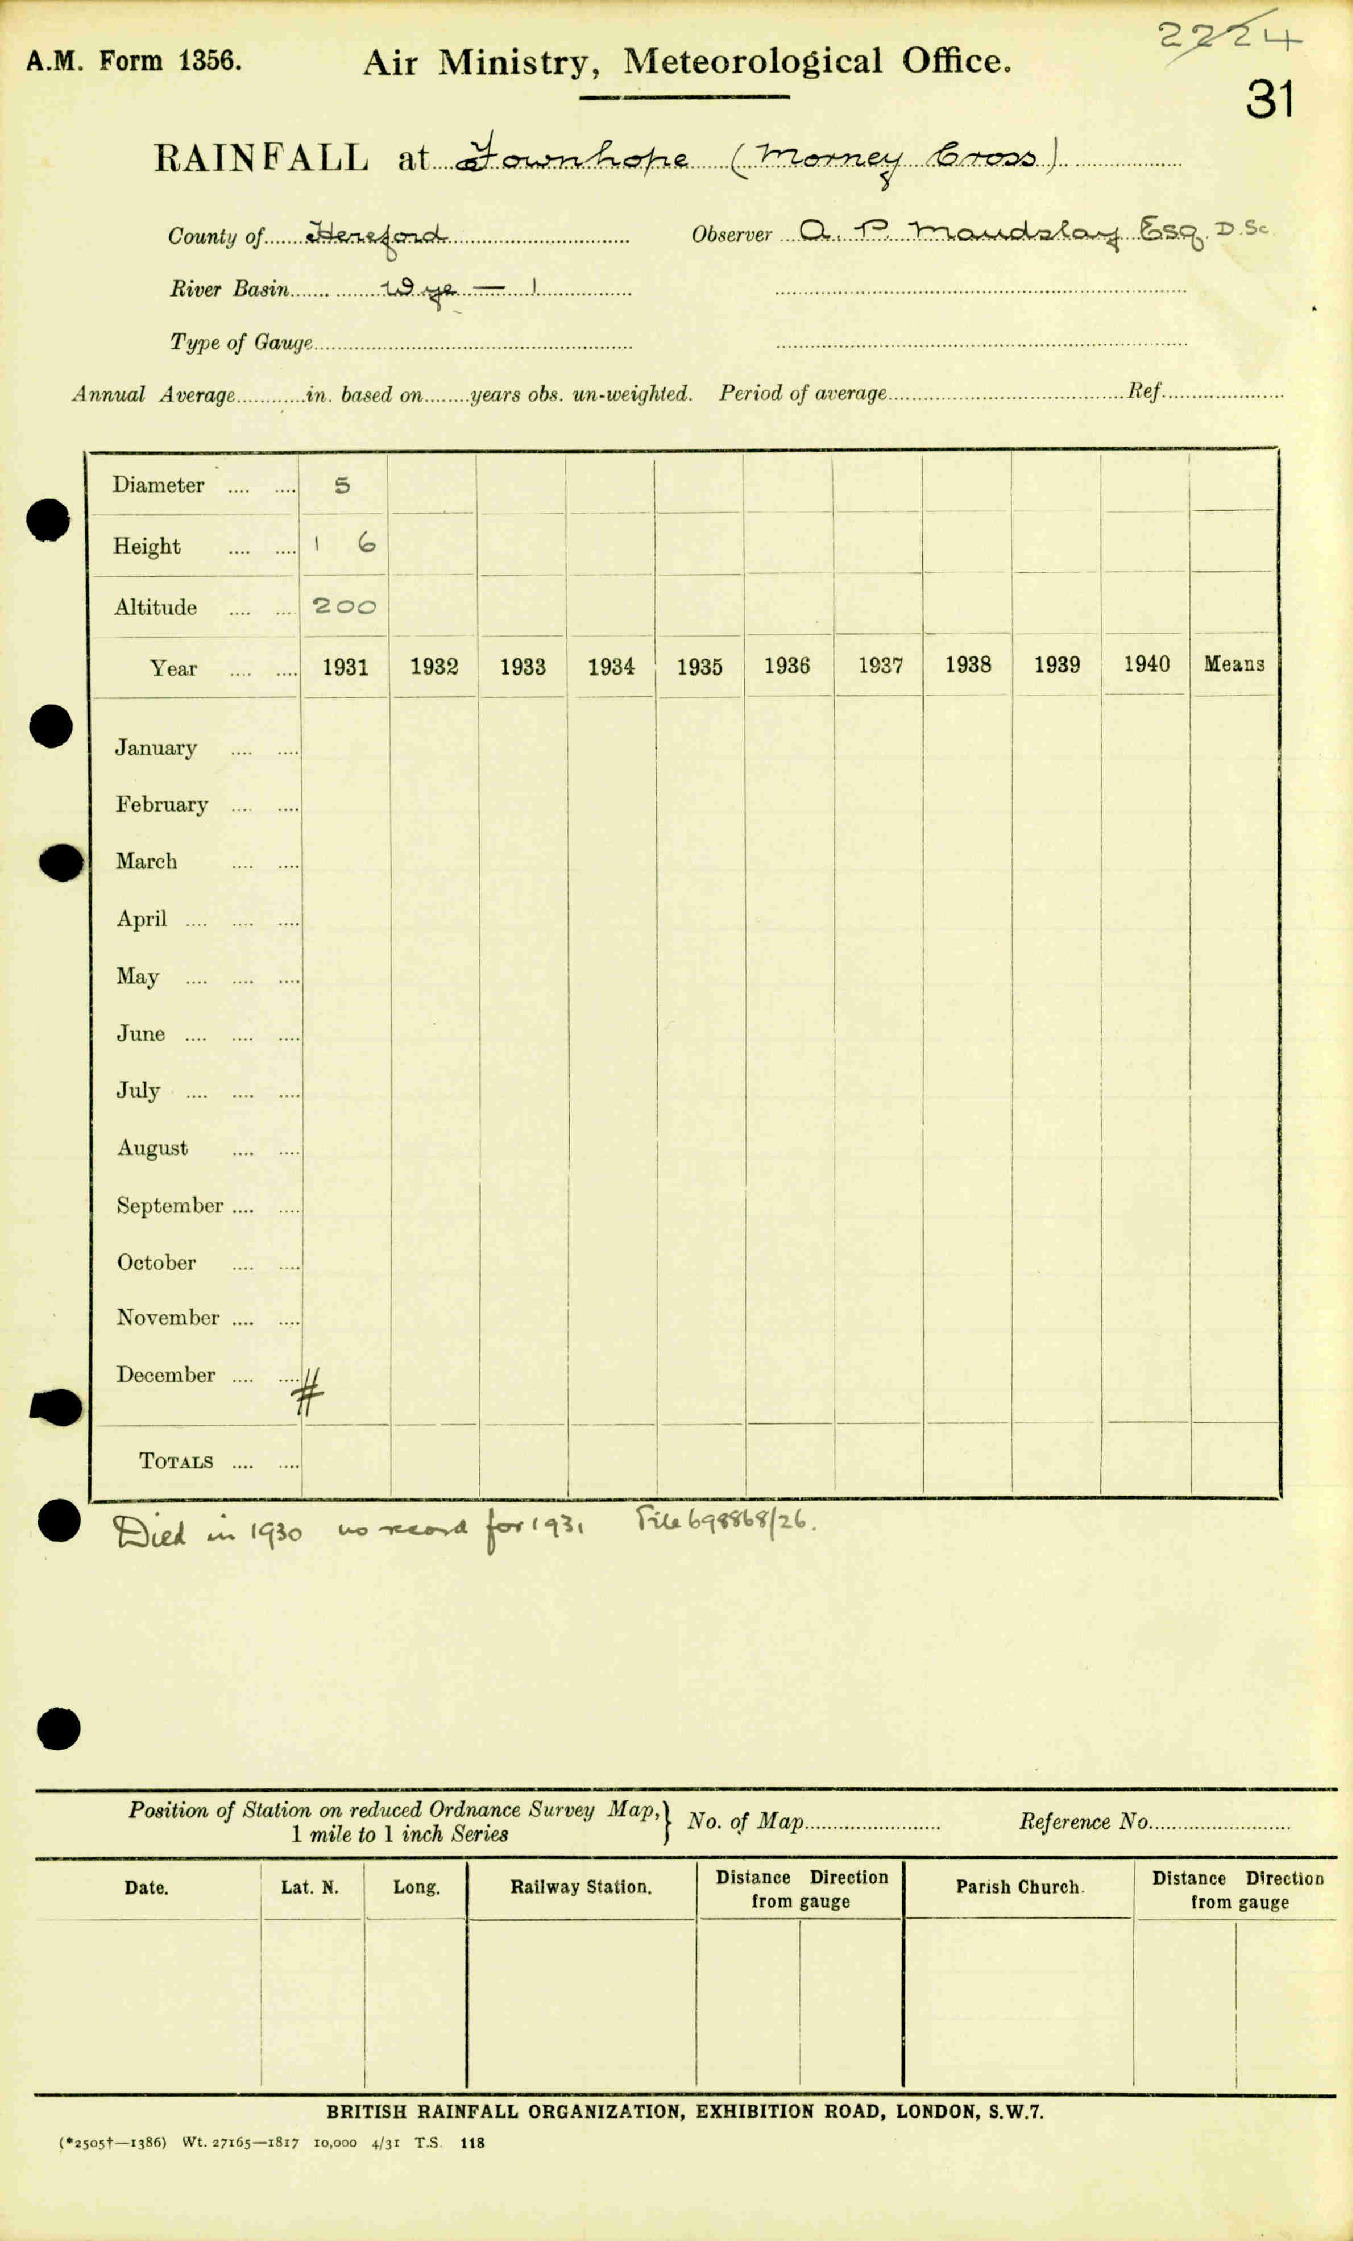 2224
A.M. Form 1356. Air Ministry, Meteorological Office.
31
RAINFALL at Fownhope (Morney Cross)
County of Hereford Observer A. P. Maudslay Esq. D.Sc
River Basin Wye — 1
Type of Gauge
Annual Average in. based on years obs. un-weighted. Period of average Ref.
Diameter 5
Height 1 6
Altitude 200
Year 1931 1932 1933 1934 1935 1936 1937 1938 1939 1940 Means
January
February
March
April
May
June
July
August
September
October
November
December #
TOTALS
Died in 1930 no record for 1931 File 698868/26.
Position of Station on reduced Ordnance Survey Map,} No. of Map Reference No.
1 mile to 1 inch Series
Date. Lat. N. Long. Railway Station. Distance Direction from gauge Parish Church. Distance Direction from gauge
BRITISH RAINFALL ORGANIZATION, EXHIBITION ROAD, LONDON, S.W.7.
(*2505†—1386) Wt. 27165—1817 10,000 4/31 T.S. 118